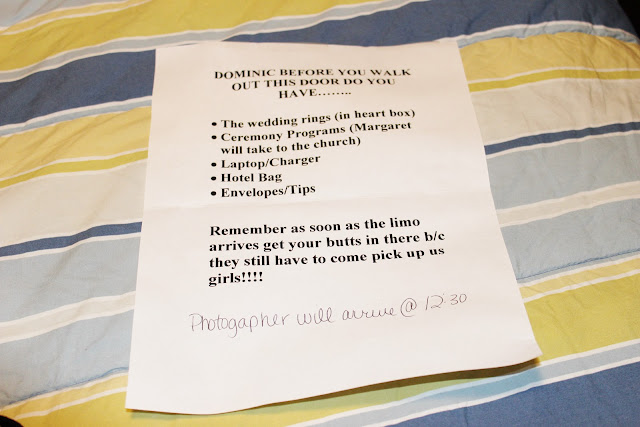 DOMINIC BEFORE YOU WALK
OUT THIS DOOR DO YOU
HAVE……..
• The wedding rings (in heart box)
• Ceremony Programs (Margaret
will take to the church)
• Laptop/Charger
• Hotel Bag
• Envelopes/Tips
Remember as soon as the limo
arrives get your butts in there b/c
they still have to come pick up us
girls!!!!
Photogapher will arrive @ 12:30